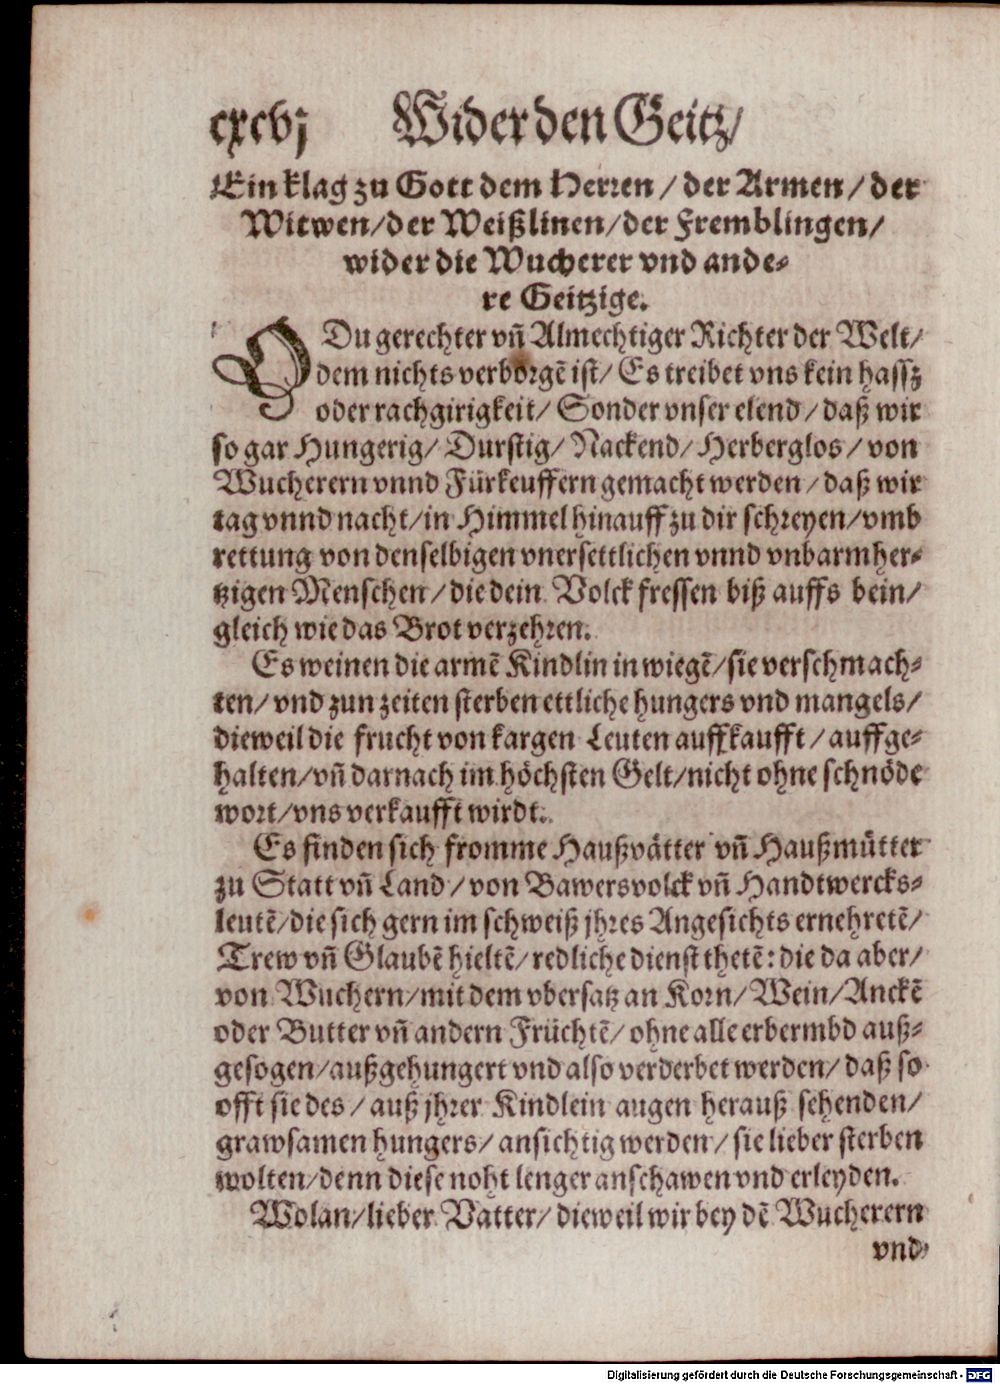 cxcvj Wider den Geitz/
Ein klag zu Gott dem Herren / der Armen / der
Witwen/der Weißlinen/der Fremblingen/
wider die Wucherer vnd ande-
re Geitzige.
O Du gerechter vñ Almechtiger Richter der Welt/
dem nichts verborgẽ ist/ Es treibet vns kein hassz
oder rachgirigkeit/ Sonder vnser elend / daß wir
so gar Hungerig/ Durstig/ Nackend/ Herberglos / von
Wucherern vnnd Fürkeuffern gemacht werden / daß wir
tag vnnd nacht/in Himmel hinauff zu dir schreyen/vmb
rettung von denselbigen vnersettlichen vnnd vnbarmher-
tzigen Menschen / die dein Volck fressen biß auffs bein/
gleich wie das Brot verzehren.
Es weinen die armẽ Kindlin in wiegẽ/sie verschmach-
ten/ vnd zun zeiten sterben ettliche hungers vnd mangels/
dieweil die frucht von kargen Leuten auffkaufft / auffge-
halten/vñ darnach im höchsten Gelt/nicht ohne schnöde
wort/vns verkaufft wirdt.
Es finden sich fromme Haußvätter vñ Haußmütter
zu Statt vñ Land / von Bawersvolck vñ Handtwercks-
leutẽ/die sich gern im schweiß jhres Angesichts ernehretẽ/
Trew vñ Glaubẽ hieltẽ/ redliche dienst thetẽ: die da aber/
von Wuchern/mit dem vbersatz an Korn/ Wein/Anckẽ
oder Butter vñ andern Früchtẽ/ ohne alle erbermbd auß-
gesogen/außgehungert vnd also verderbet werden/ daß so
offt sie des / auß jhrer Kindlein augen herauß sehenden/
grawsamen hungers/ ansichtig werden/ sie lieber sterben
wolten/denn diese noht lenger anschawen vnd erleyden.
Wolan/lieber Vatter/ dieweil wir bey dẽ Wucherern
vnd
Digitalisierung gefördert durch die Deutsche Forschungsgemeinschaft - DFG